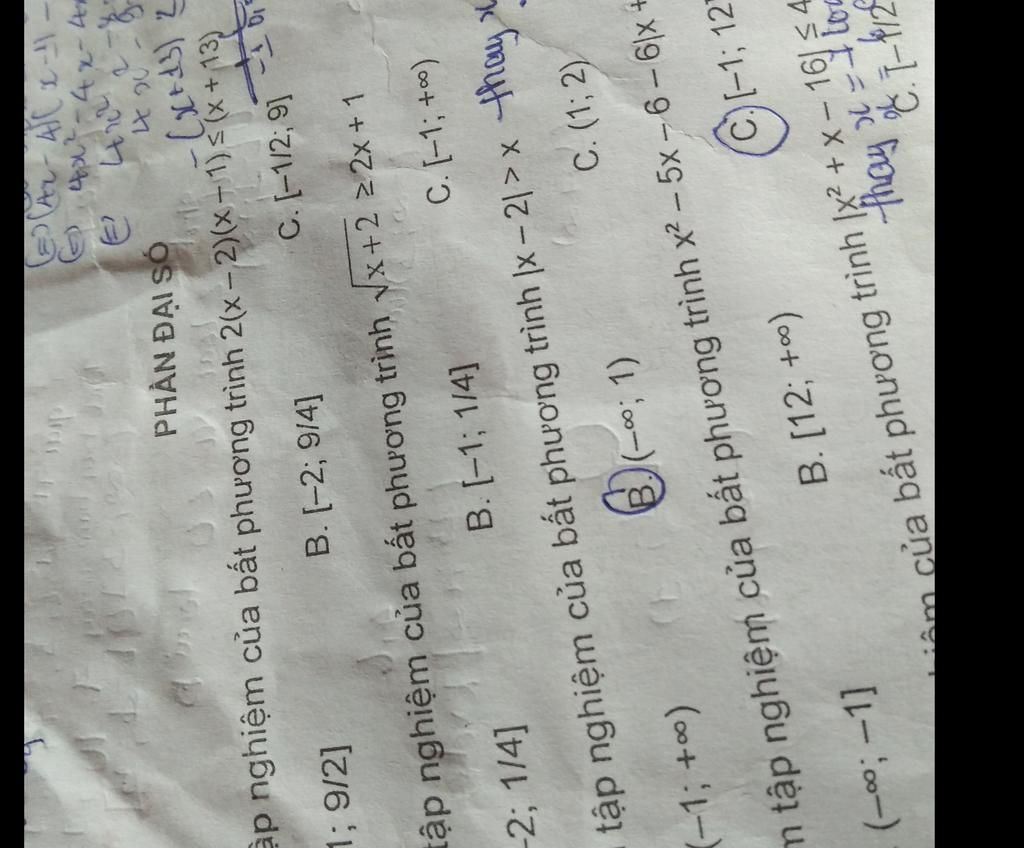 PHẦN ĐẠI SỐ
ập nghiệm của bất phương trình 2(x − 2)(x − 1) ≤ (x + 13)
1; 9/2] B. [−2; 9/4] C. [−1/2; 9]
tập nghiệm của bất phương trình √x + 2 ≥ 2x + 1
−2; 1/4] B. [−1; 1/4] C. [−1; +∞)
tập nghiệm của bất phương trình |x − 2| > x thay x
(−1; +∞) B. (−∞; 1) C. (1; 2)
m tập nghiệm của bất phương trình x² − 5x − 6 − 6|x +
(−∞; −1] B. [12; +∞) C. [−1; 12
của bất phương trình |x² + x − 16| ≤ 4
thay x = -1
thay x = C. [−1/2